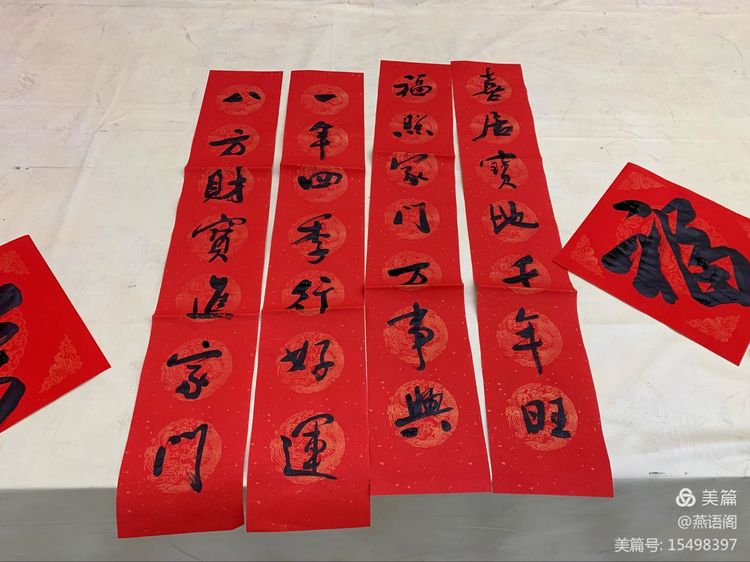 喜居寳地千年旺
福照家门万事興
一年四季行好運
八方財寳進家門
福
美篇
@燕语阁
美篇号: 15498397